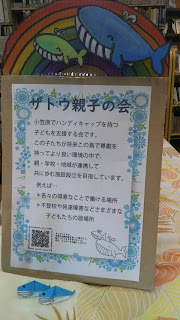 ザトウ親子の会
小笠原でハンディキャップを持つ
子どもを支援する会です。
この子たちが将来この島で尊厳を
持ってより良い環境の中で、
親・学校・地域が連携して
共に歩む施設設立を目指しています。
例えば…
＊各々の得意なことで働ける場所
＊不登校や発達障害などさまざまな
子どもたちの居場所